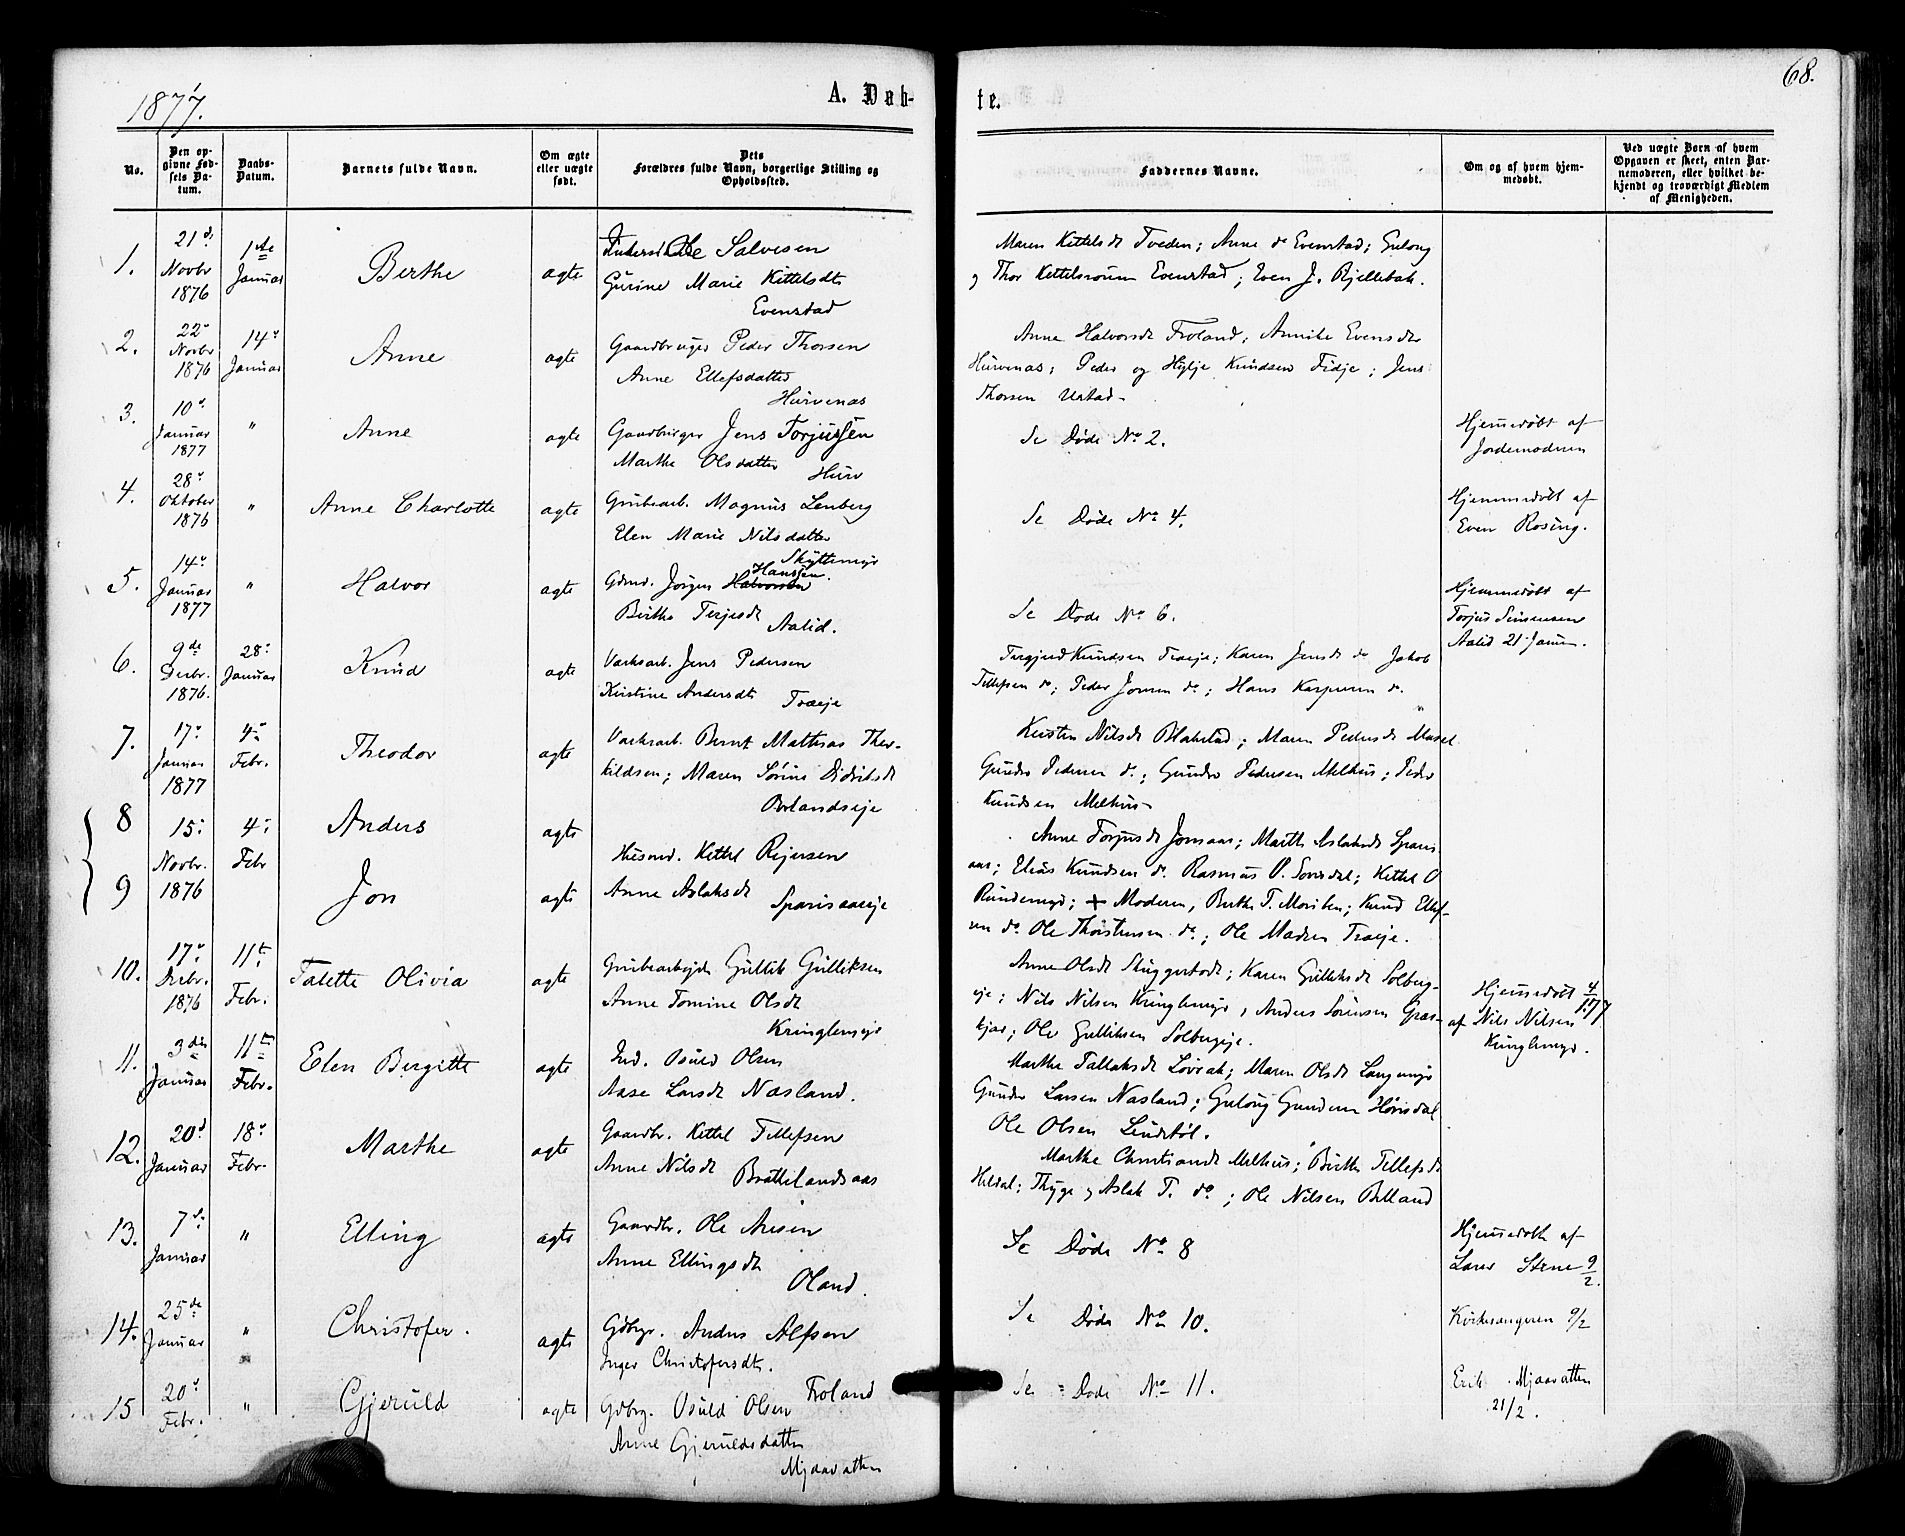 1877.
A. Døb-
te.
68.
No.
Den op-
givne Fød-
sels Da-
tum.
Daabs-
Datum.
Barnets fulde Navn.
Om ægte
eller uægte
født.
Dets
Forældres fulde Navn, borgerlige Stilling og
Opholdssted.
Faddernes Navne.
Om og af hvem hjem-
medøbt.
Ved uægte Børn af hvem
Opgaven er skeet, enten Bar-
nemoderen, eller hvilket be-
kjendt og troværdigt Medlem
af Menigheden.
1.
21d
Novbr
1876
1ste
Januar
Berthe
ægte
Ole Salvesen
Gurine Marie Kittelsdt
Evenstad
Maren Kittelsdt Tveden; Anne do Evenstad; Gulong
og Thor Evenstad; Even J. Bjellebak.
2.
22
Novbr
1876
14
Januar
Anne
ægte
Gaardbruger Peder Thorsen
Anne Ellefsdatter
Hurvenæs
Anne Halvorsdt Froland; Annike Evensdtr
Hurvenæs; Peder og Knudsen Fidje; Jens
Thorsen Urstad
3.
10
Januar
1877
"
Anne
ægte
Gaardbruger Jens Torjussen
Marthe Olsdatter
Hurv
Se Døde No 2.
Hjemmedøbt af
Jordemoderen
4.
28
Oktober
1876
"
Anne Charlotte
ægte
Grubearb. Magnus Lenberg
Elen Marie Nilsdatter
Skyttemyr
Se Døde No 4.
Hjemmedøbt af
Even Rosing.
5.
14
Januar
1877
"
Halvor
ægte
Gdmd. Jørgen Halvorsen Hanssen.
Birthe Terjesdt
Aalid.
Se Døde No 6.
Hjemmedøbt af
Torjus Simonsen
Aalid 21 Januar.
6.
9de
Decbr.
1876.
28
Januar
Knud
ægte
Værksarb. Jens Pedersen
Kirstine Andersdt
Træeje
Knudsen Træeje; Karen Jensdt do Jakob
Tellefsen do; Peder Jonsen do; Hans do.
7.
17
Januar
1877
4
Febr.
Theodor
ægte
Værksarb. Bernt Mathias Ther-
kildsen; Maren Sørine Didriksdt
Kirsten Nilsdt Blakstad; Maren Pedersdt
Gunder Pedersen do; Gunder Pedersen Melhus; Peder
Knudsen Melhus
8
15
Novbr.
1876
4
Febr
Anders
ægte
Husmd. Kittel Rejersen
Anne Aslaksdt
9
Jon
ægte
Anne Torjusdt Jomaas; Marthe Aslaksdt
aas; Elias Knudsen do. Rasmus O. Kittel O
Moderen, Berthe T. Knud Ellef-
sen do Ole Thorstensen do; Ole Madsen Træeje.
10.
17
Decbr.
1876
11te
Febr.
Talette Olivia
ægte
Grubearbejder Gullik Gulliksen
Anne Tomine Olsdt
Kringlemyr
Anne Olsdt; Karen Gulliksdt Solberg-
eje; Nils Nilsen Kringlemyr, Anders Sørensen Græs-
kjær; Ole Gulliksen Solbergeje.
Hjemmedøbt 4/1 77
af Nils Nilsen
Kringlemyr.
11.
3die
Januar
11te
Febr.
Elen Bergitte
ægte
Ind. Osuld Olsen
Aase Larsdt Næsland.
Marthe Tallaksdt Løvrak; Maren Olsdt Langemyr
Gunder Larsen Næsland; Gulong Gundersen Hørisdal
Ole Olsen Lindtøl.
12.
20d
Januar
18
Febr.
Marthe
ægte
Gaardbr. Kittel Tellefsen
Anne Nilsdt Brattelandsaas
Marthe Christiansdt Melhus; Birthe Tellefsdt
Heldal; Thyge og Aslak T. do; Ole Nilsen Belland
13.
7de
Januar
"
Elling
ægte
Gaardbr. Ole
Anne Ellingsdt
Oland.
Se Døde No 8
Hjemmedøbt af
Lærer Stene 9/2.
14.
25de
Januar
"
Christofer.
ægte
Gdbgr. Anders Alfsen
Inger Christofersdt.
Froland
Se Døde No 10.
Kirkesangeren 9/2
15
20
Febr.
"
Gjeruld
ægte
Gdbrg. Osuld Olsen
Anne Gjeruldsdatter
Mjaavatten
Se Døde No 11.
Erik Mjaavatten
21/2.